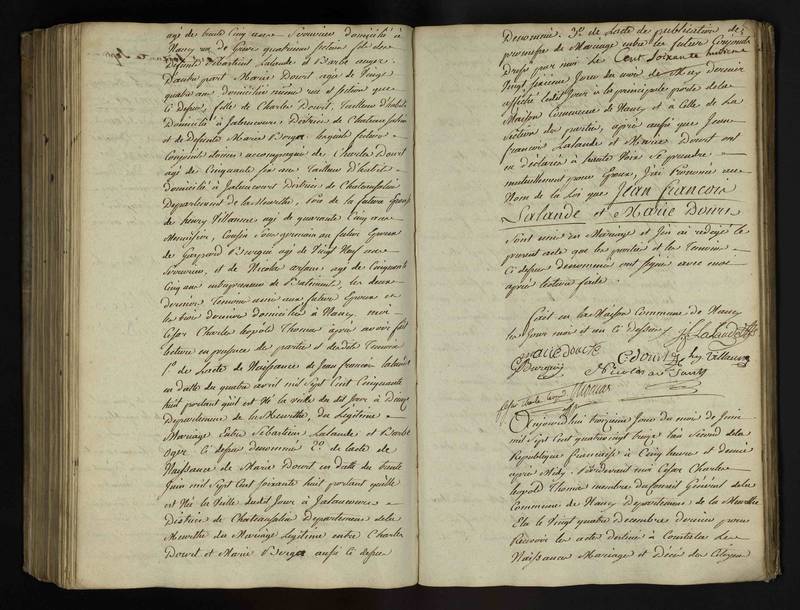 agé de trente Cinq ans Serrurier domicilié à
Nancy rue de Greve quatrieme section fils de
Défunts Sébastien Lalande et Barbe auger.
Dautre part Marie Dourt agée de Vingt
quatre ans domiciliée même rue et section que
Ci dessus, fille de Charles Dourt, Tailleur d'habits
Domicilié à Jalaucourt District de Chateausalin
et de Défunte Marie Berga
Conjoints accompagnés de Charles Dourt
agé de Cinquante six ans Tailleur d'habits
domicilié à Jalaucourt District de Chateausalin
Departement de la Meurthe, Pere de la future Epouse
de henry Villaume agé de quarante Cinq ans
Menuisier, Cousin germain au futur Epoux
de Gaspard Bourguin agé de Vingt Neuf ans
Serrurier, et de Nicolas agé de Cinquante
Cinq ans entrepreneur de Batiments, les deux
dernier Temoins amis aux futurs Epoux et
les trois dernier domiciliés à Nancy. moi
Cesar Charles leopold Thomas après avoir fait
lecture en presence des parties et desdits Temoins
1°. de Lacte de Naissance de Jean francois lalande
en datte du quatre avril mil Sept Cent Cinquante
huit portant qu'il est Né la veille du dit Jour à
Departement de la Meurthe, du Légitime
Mariage Entre Sébastien Lalande et Barbe
Oger Ci dessus denommés 2°. de Lacte de
Naissance de Marie Dourt en datte du trente
Juin mil Sept Cent soixante huit portant qu'elle
est Née la Veille dudit Jour à Jalaucourt
District de Chateausalin Departement de la
Meurthe du Mariage Légitime entre Charles
Dourt et Marie Berga aussi Ci dessus
Denommés. 3°. de Lacte de publication de
promesse de Mariage entre les futurs Conjoints
Dressé par moi Le Cent soixante huitieme
Vingt sixieme Jour du mois de May dernier
affiché ledit Jour à la principale porte de la
Maison Commune de Nancy et à Celle de La
Section des parties, après aussi que Jean
francois Lalande et Marie Dourt ont
eu déclaré à haute Voix se prendre
mutuellement pour Epoux, J'ai Prononcé au
Nom de la Loi que Jean François
Lalande et Marie Dourt
Sont unis en Mariage et J'en ai rédigé le
present acte que les parties et les Temoins
Ci dessus dénommés ont signé avec moi
après lecture faite.
fait en la Maison Commune de Nancy
les Jour mois et an Ci dessus J f Lalande
Marie dourte C dourt hry Villaume
G Bourguin Nicolas
Cesar Charles Leopold Thomas
Aujourd'hui troizieme Jour du mois de Juin
mil Sept Cent quatre vingt treize l'an Second de la
République française à Cinq heures et demie
après Midy. Pardevant moi Cesar Charles
leopold Thomas membre du Conseil Général de la
Commune de Nancy Departement de la Meurthe
Elu le Vingt quatre decembre dernier pour
Recevoir les actes destinés à Constater les
Naissances Mariages et Décès des Citoyens